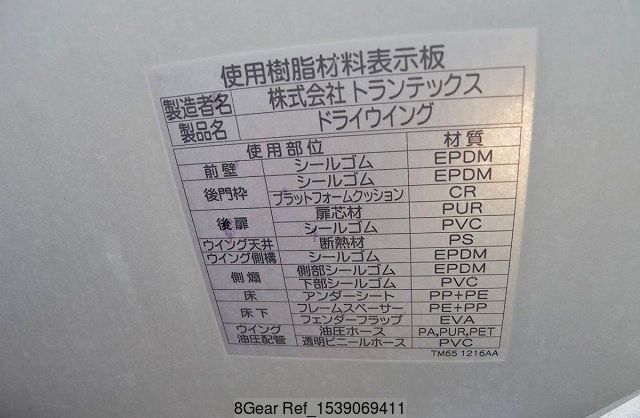 使用樹脂材料表示板
製造者名 株式会社 トランテックス
製品名 ドライウイング
使用部位 材質
前壁 シールゴム EPDM
シールゴム EPDM
後門枠 プラットフォームクッション CR
扉芯材 PUR
後扉 シールゴム PVC
ウイング天井 断熱材 PS
ウイング側構 シールゴム EPDM
側煽 側部シールゴム EPDM
下部シールゴム PVC
床 アンダーシート PP+PE
床下 フレームスペーサー PE+PP
フェンダーフラップ EVA
ウイング 油圧ホース PA,PUR,PET
油圧配管 透明ビニールホース PVC
TM65 1216AA
8Gear Ref_1539069411